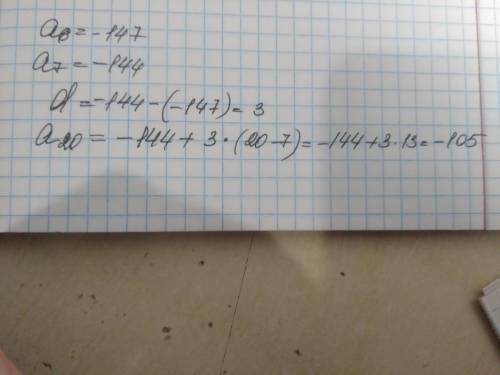 a₆ = -147
a₇ = -144
d = -144 - (-147) = 3
a₂₀ = -144 + 3 · (20 - 7) = -144 + 3 · 13 = -105